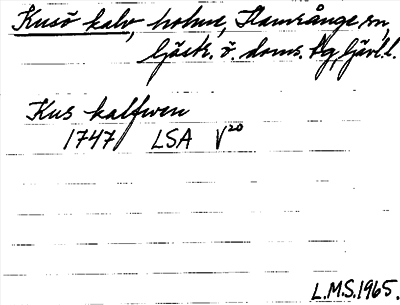 Kusö kalv, holme, Hamrånge sn,
Gästr. ö. doms. hg, Gävl. l.
Kus kalfwen
1747 LSA V20
L.M.S. 1965.